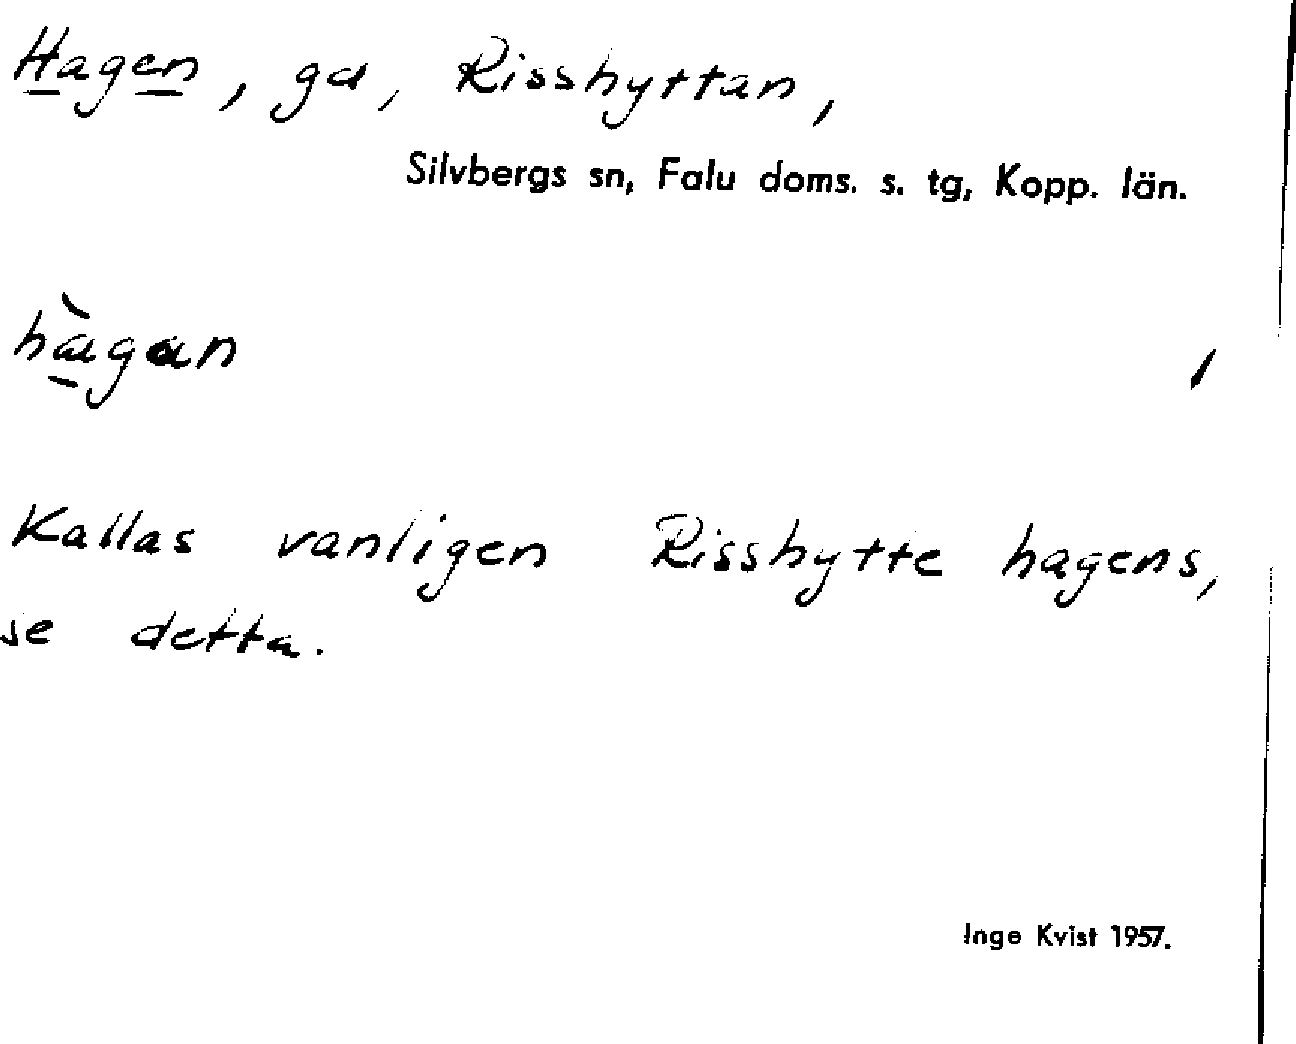 Hagen, gd, Risshyttan,
Silvbergs sn, Falu doms. s. tg, Kopp. län.
hàgan
Kallas vanligen Risshytte hagens,
se detta.
Inge Kvist 1957.